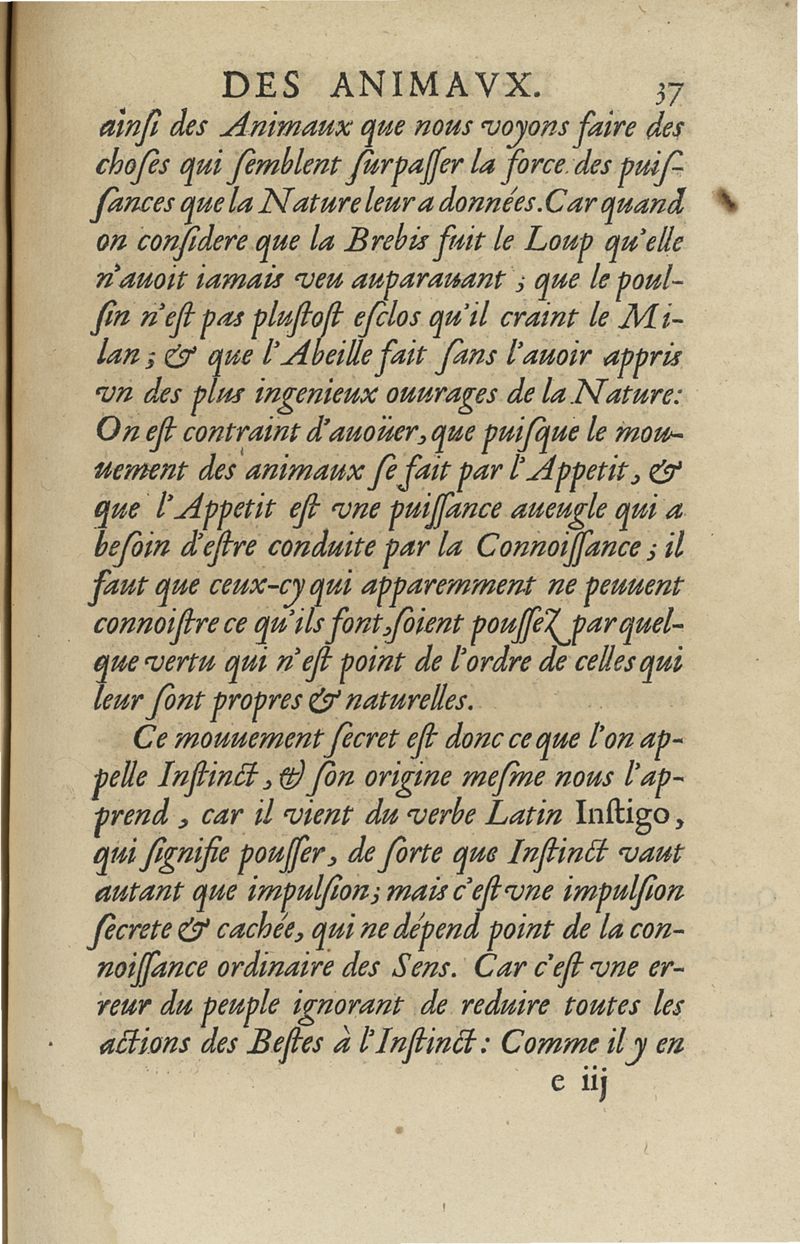 DES ANIMAVX. 37
ainſi des Animaux que nous voyons faire des
choſes qui ſemblent ſurpaſſer la force des puiſ-
ſances que la Nature leur a données. Car quand
on conſidere que la Brebis fuit le Loup qu'elle
n'auoit iamais veu auparauant ; que le poul-
ſin n'eſt pas pluſtoſt eſclos qu'il craint le Mi-
lan ; & que l'Abeille fait ſans l'auoir appris
vn des plus ingenieux ouurages de la Nature:
On eſt contraint d'auoüer, que puiſque le mou-
uement des animaux ſe fait par l'Appetit, &
que l'Appetit eſt vne puiſſance aueugle qui a
beſoin d'eſtre conduite par la Connoiſſance ; il
faut que ceux-cy qui apparemment ne peuuent
connoiſtre ce qu'ils font, ſoient pouſſeZ par quel-
que vertu qui n'eſt point de l'ordre de celles qui
leur ſont propres & naturelles.
Ce mouuement ſecret eſt donc ce que l'on ap-
pelle Inſtinct, & ſon origine meſme nous l'ap-
prend, car il vient du verbe Latin Inſtigo,
qui ſignifie pouſſer, de ſorte que Inſtinct vaut
autant que impulſion; mais c'eſt vne impulſion
ſecrete & cachée, qui ne dépend point de la con-
noiſſance ordinaire des Sens. Car c'eſt vne er-
reur du peuple ignorant de reduire toutes les
actions des Beſtes à l'Inſtinct : Comme il y en
e iij